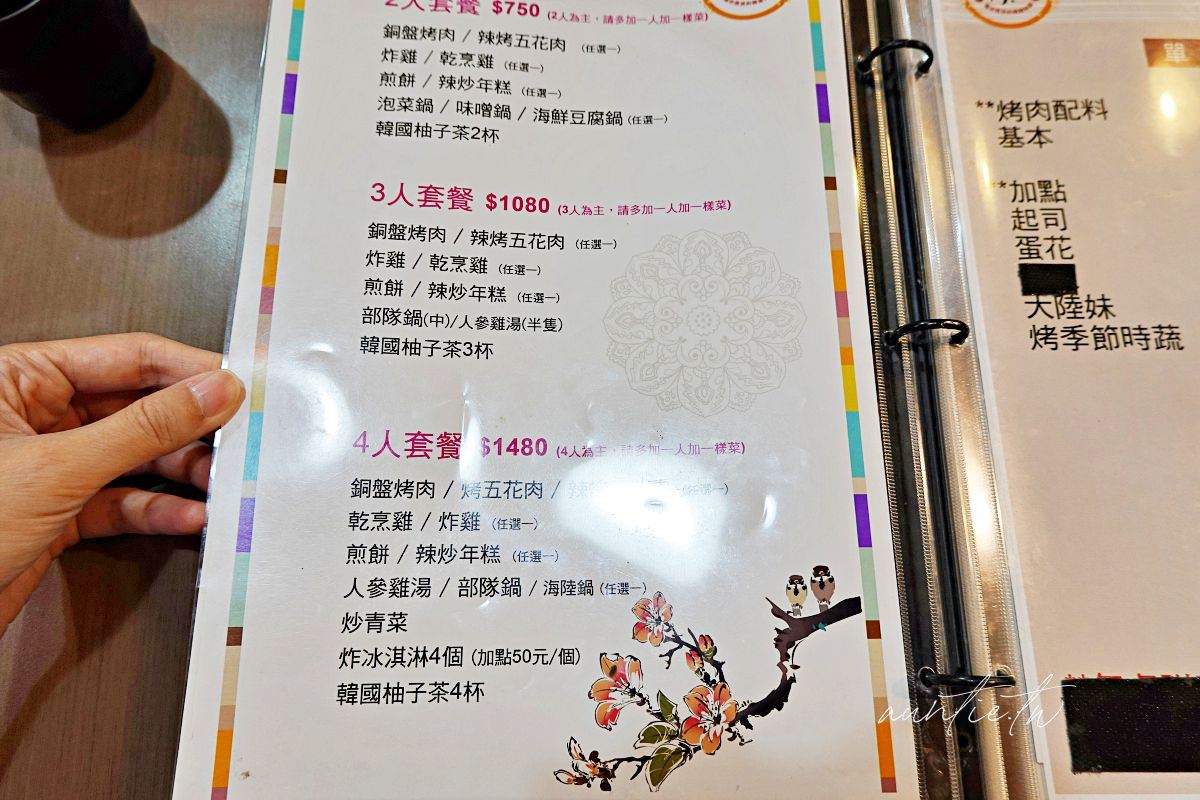 2人套餐 $750 (2人為主，請多加一人加一樣菜)
銅盤烤肉 / 辣烤五花肉 (任選一)
炸雞 / 乾烹雞 (任選一)
煎餅 / 辣炒年糕 (任選一)
泡菜鍋 / 味噌鍋 / 海鮮豆腐鍋 (任選一)
韓國柚子茶2杯
3人套餐 $1080 (3人為主，請多加一人加一樣菜)
銅盤烤肉 / 辣烤五花肉 (任選一)
炸雞 / 乾烹雞 (任選一)
煎餅 / 辣炒年糕 (任選一)
部隊鍋(中)/人參雞湯(半隻)
韓國柚子茶3杯
4人套餐 $1480 (4人為主，請多加一人加一樣菜)
銅盤烤肉 / 烤五花肉 / 辣 (任選一)
乾烹雞 / 炸雞 (任選一)
煎餅 / 辣炒年糕 (任選一)
人參雞湯 / 部隊鍋 / 海陸鍋 (任選一)
炒青菜
炸冰淇淋4個 (加點50元/個)
韓國柚子茶4杯
單
**烤肉配料
基本
*加點
起司
蛋花
大陸妹
烤季節時蔬
auntie.tw